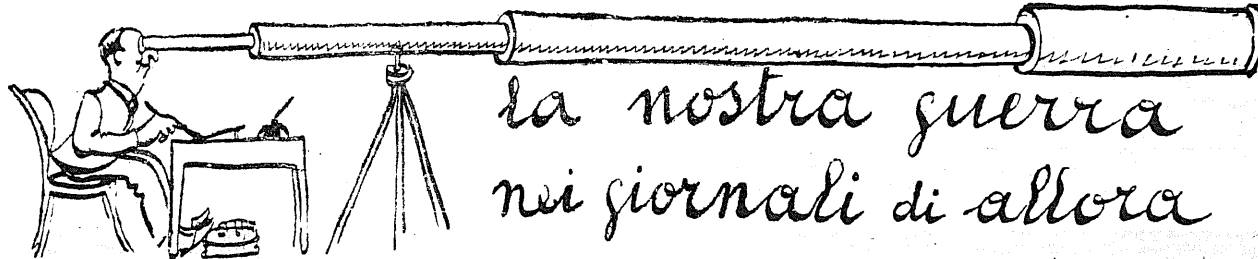 la nostra guerra
nei giornali di allora